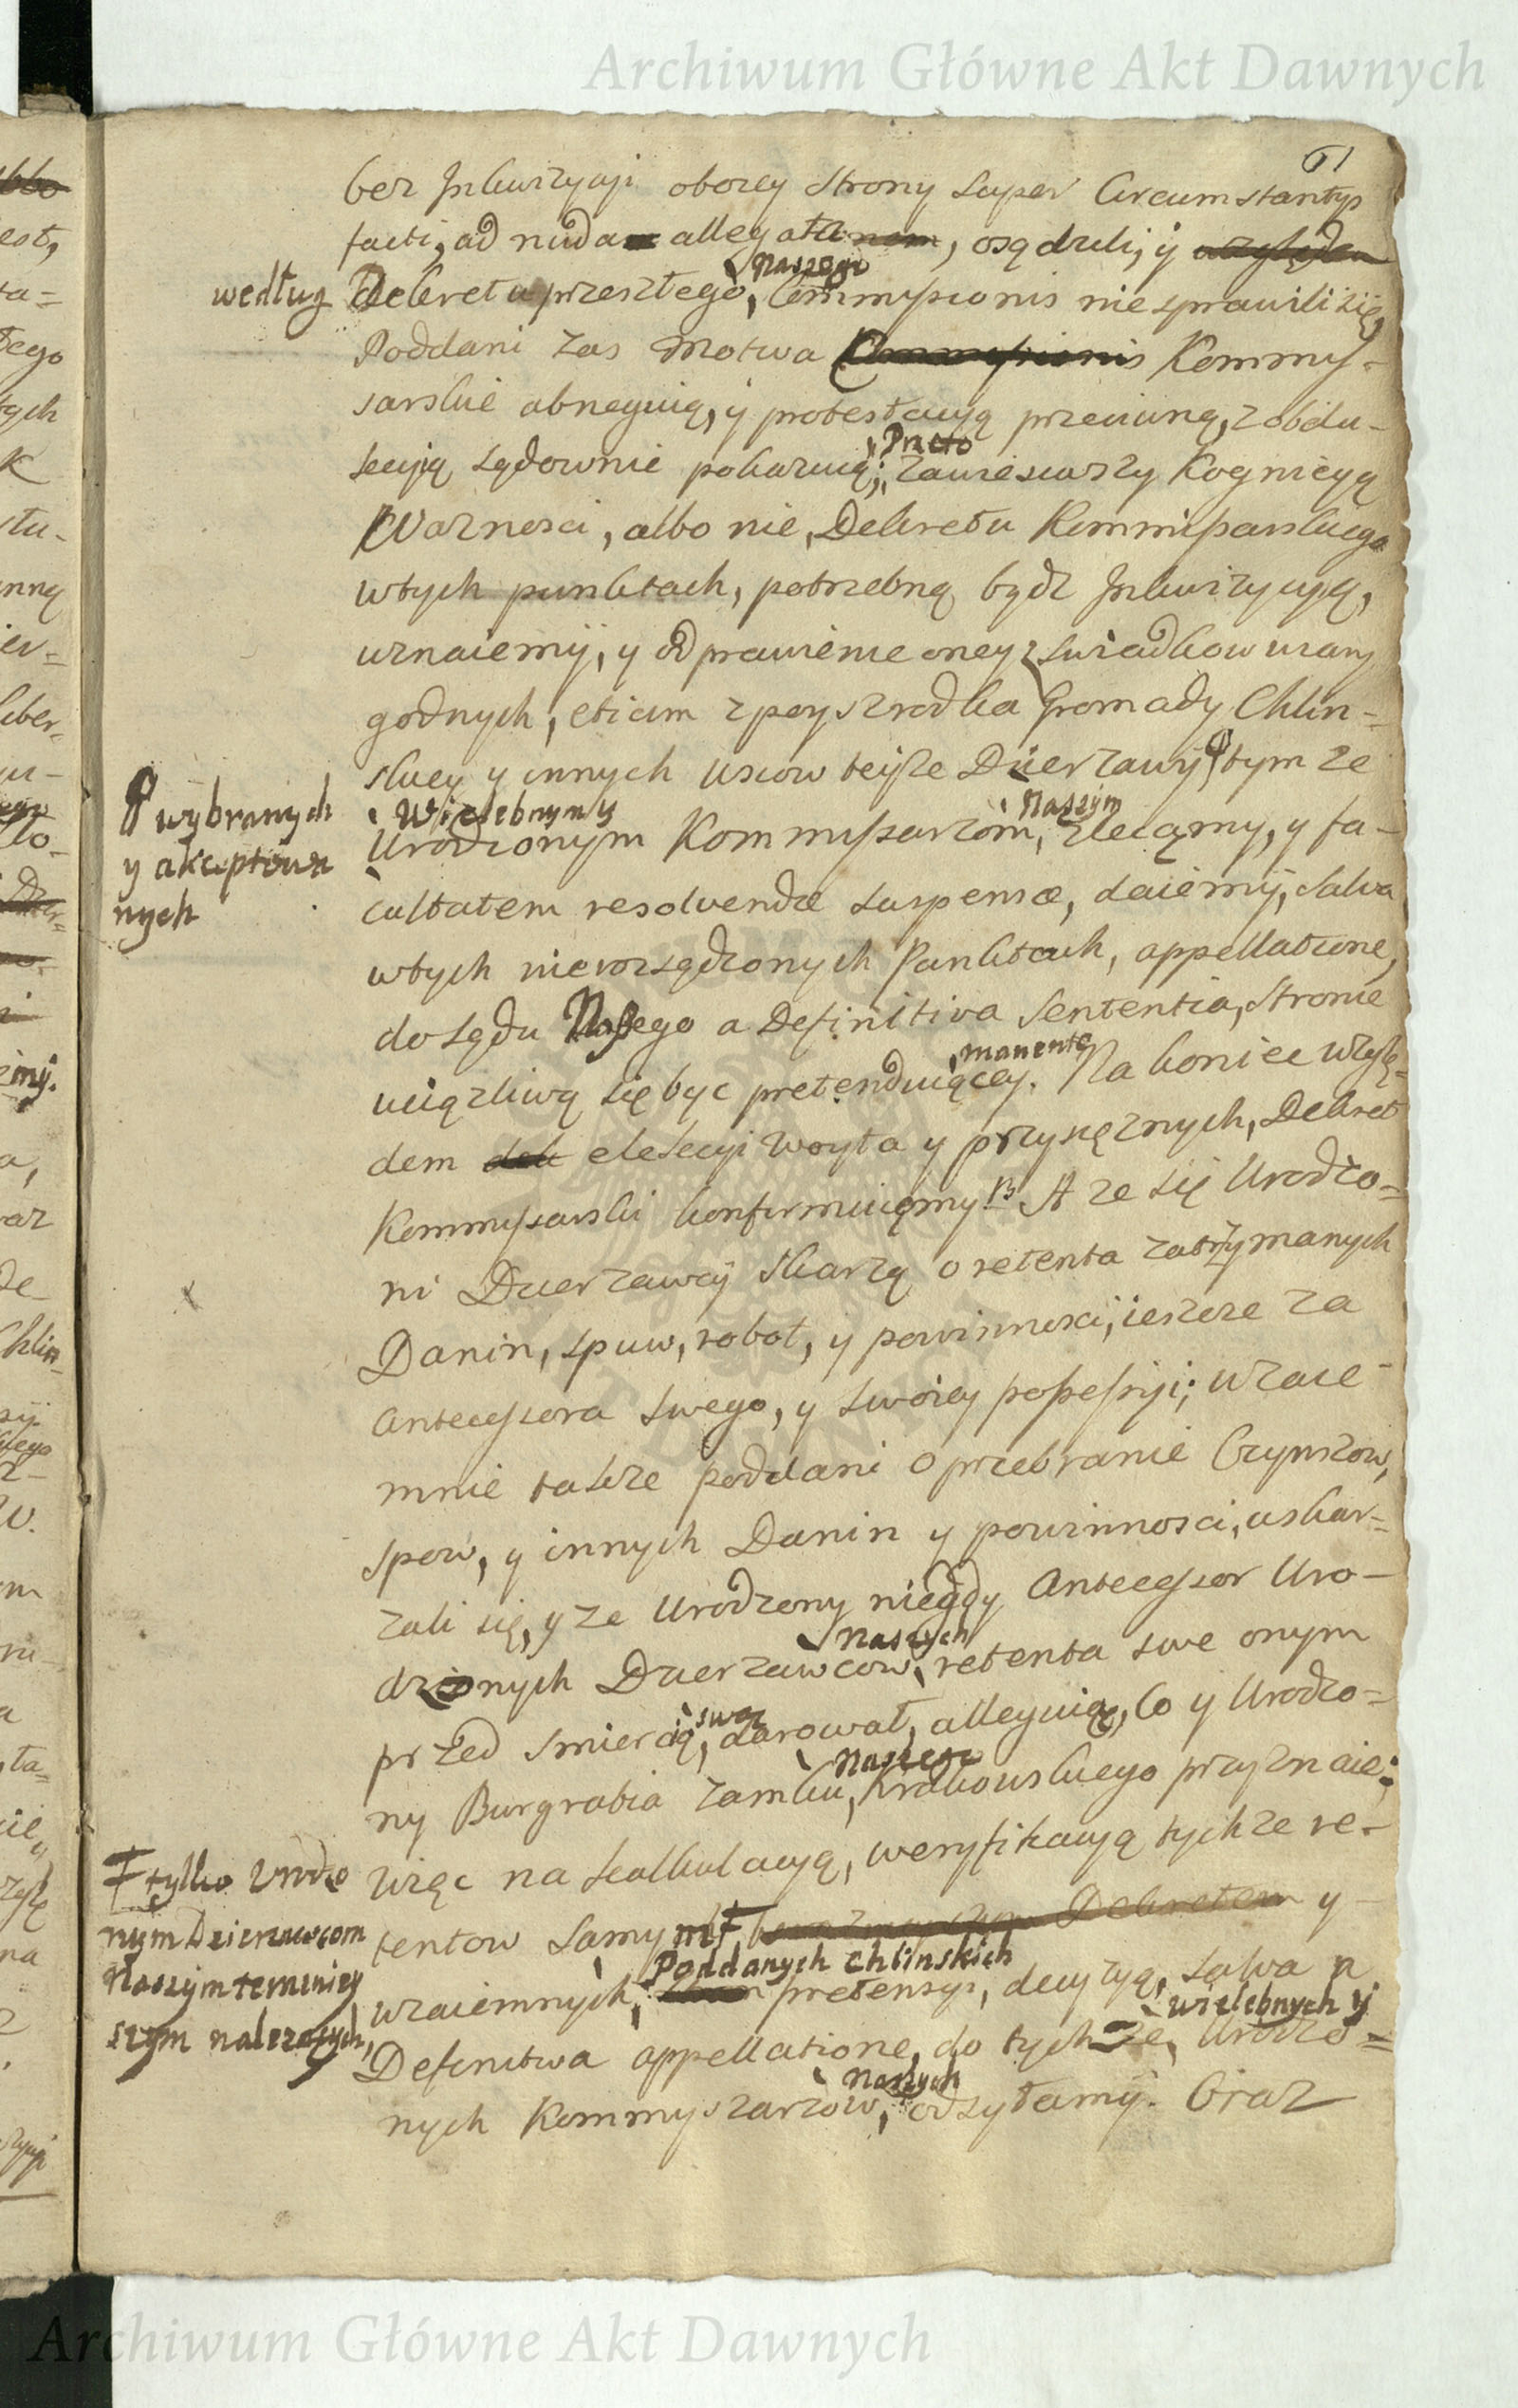 Archiwum Główne Akt Dawnych
61
bez Inkwizycji oboiey strony super Circumstantys
facti, ad nuda allegata, osądzili, y
według Dekretu przeszłego, Naszego Commyssionis niesprawili się,
Poddani zas Motwa Kommys-
sarskie abneguią, y protestacyą przeciwną, z obdu-
kcyją sądownie pokazuią; Przeto zawiesiwszy Kognicyą
Waznosci, albo nie, Dekretu Kommissarskiego
wtych punktach, potrzebną bydz Inkwizycyą,
uznaiemÿ, y odprawienie oney z swiadkow wiary
godnych, etiam z poyszrodka Gromady Chlin-
skiey y innych wsiow teyże Dzierzawÿ, tym ze
wybranych
y akceptowa
nych
Wielebnym y
Urodzonym Kommyssarzom, Naszym zlecamy, y fa-
cultatem resolvendæ suspensæ, daiemÿ, salva
wtych nierozsądzonych Punktach, appellatione,
do sądu Naszego a Definitiva Sententia, stronie
uciązliwą się byc pretenduiącey, manente. Na koniec wzglę-
dem elekcyi Woyta y przysięznych, Dekret
Kommyssarski konfirmuięmy. A ze się Urodzo-
ni Dzierzawcÿ skarzą o retenta zatrzymanych
Danin, spuw, robot, y powinnosci, ieszcze za
Antecessora swego, y swoiey possessyi; wzaie-
mnie takze poddani o przebranie Czynszow,
spow, y innych Danin y powinnosci, uskar-
zali się, y ze Urodzony niegdy Antecessor Uro-
dzonych Dzierzawcow, Naszych retenta swe onym
przed smiercią, swą darował, alleguią, Co y Urodzo-
ny Burgrabia Zamku, Naszego Krakowskiego przyznaie;
więc na kalkulacyą, weryfikacyą tychze re-
tentow samym
tylko Urodzo
nym Dzierzawcom
Naszym teraznieÿ
szym nalezących,
Dekretem y
wzaiemnych, Poddanych Chlinskich pretensyi, decyzyą, salva a
Definitiva appellatione, do tychze, Wielebnych y Urodzo-
nych Kommyszarzow, Naszych odsyłamÿ. Oraz
Archiwum Główne Akt Dawnych